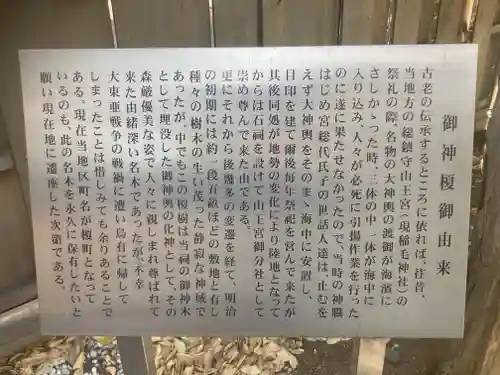 御神榎御由来
古老の伝承するところに依れば、往昔、
当地方の総鎮守山王宮(現稲毛神社)の
祭礼の際、名物の大神輿の渡御が海濱に
さしかゝった時、三体の中一体が海中に
入り込み、人々が必死に引揚作業を行った
のに遂に果たせなかったので、当時の神職
はじめ宮総代氏子の世話人達は、止むを
えず大神輿をそのまゝ海中に安置し、
目印を建て爾後毎年祭祀を営んで来たが
其後同処が地勢の変化により陸地となって
からは石祠を設けて山王宮御分社として
崇め尊んで来た由である。
更にそれから後幾多の変遷を経て、明治
の初期には約一段五畝ほどの敷地と有し
種々の樹木の生い茂った静寂な神域で
あったが、中でもこの榎樹は当祠の御神木
として埋没した御神輿の化神として、その
森厳優美な姿で人々に親しまれ尊ばれて
来た由緒深い名木であったが、不幸
大東亜戦争の戦禍に遭い烏有に帰して
しまったことは惜しみても余りあることで
ある。現在当地区町名が榎町となって
いるのも、此の名木を永久に保有したいと
願い現在地に遷座した次第である。